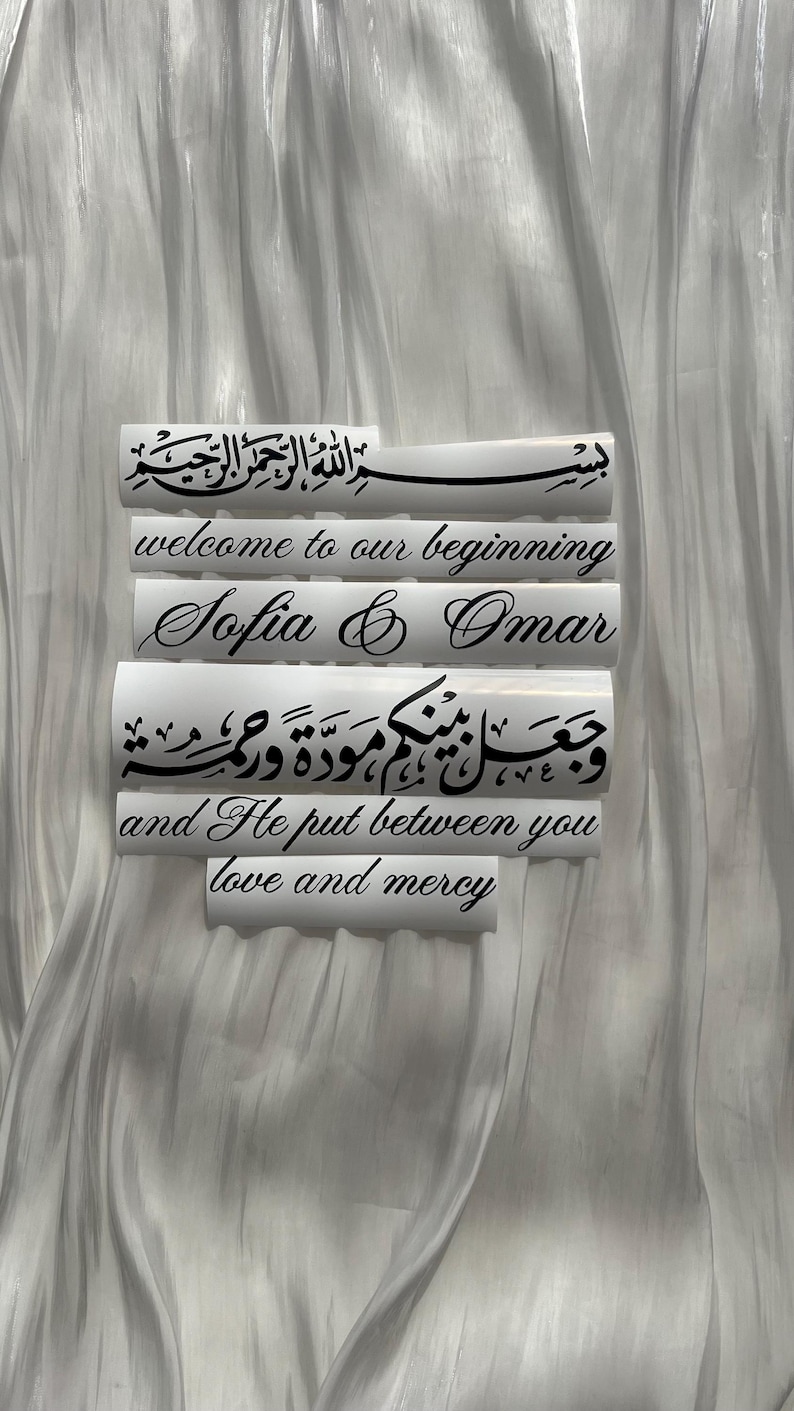 بِسْمِ اللهِ الرَّحْمَنِ الرَّحِيمِ
welcome to our beginning
Sofia & Omar
وَجَعَلَ بَيْنَكُم مَوَدَّةً وَرَحْمَةً
and He put between you
love and mercy